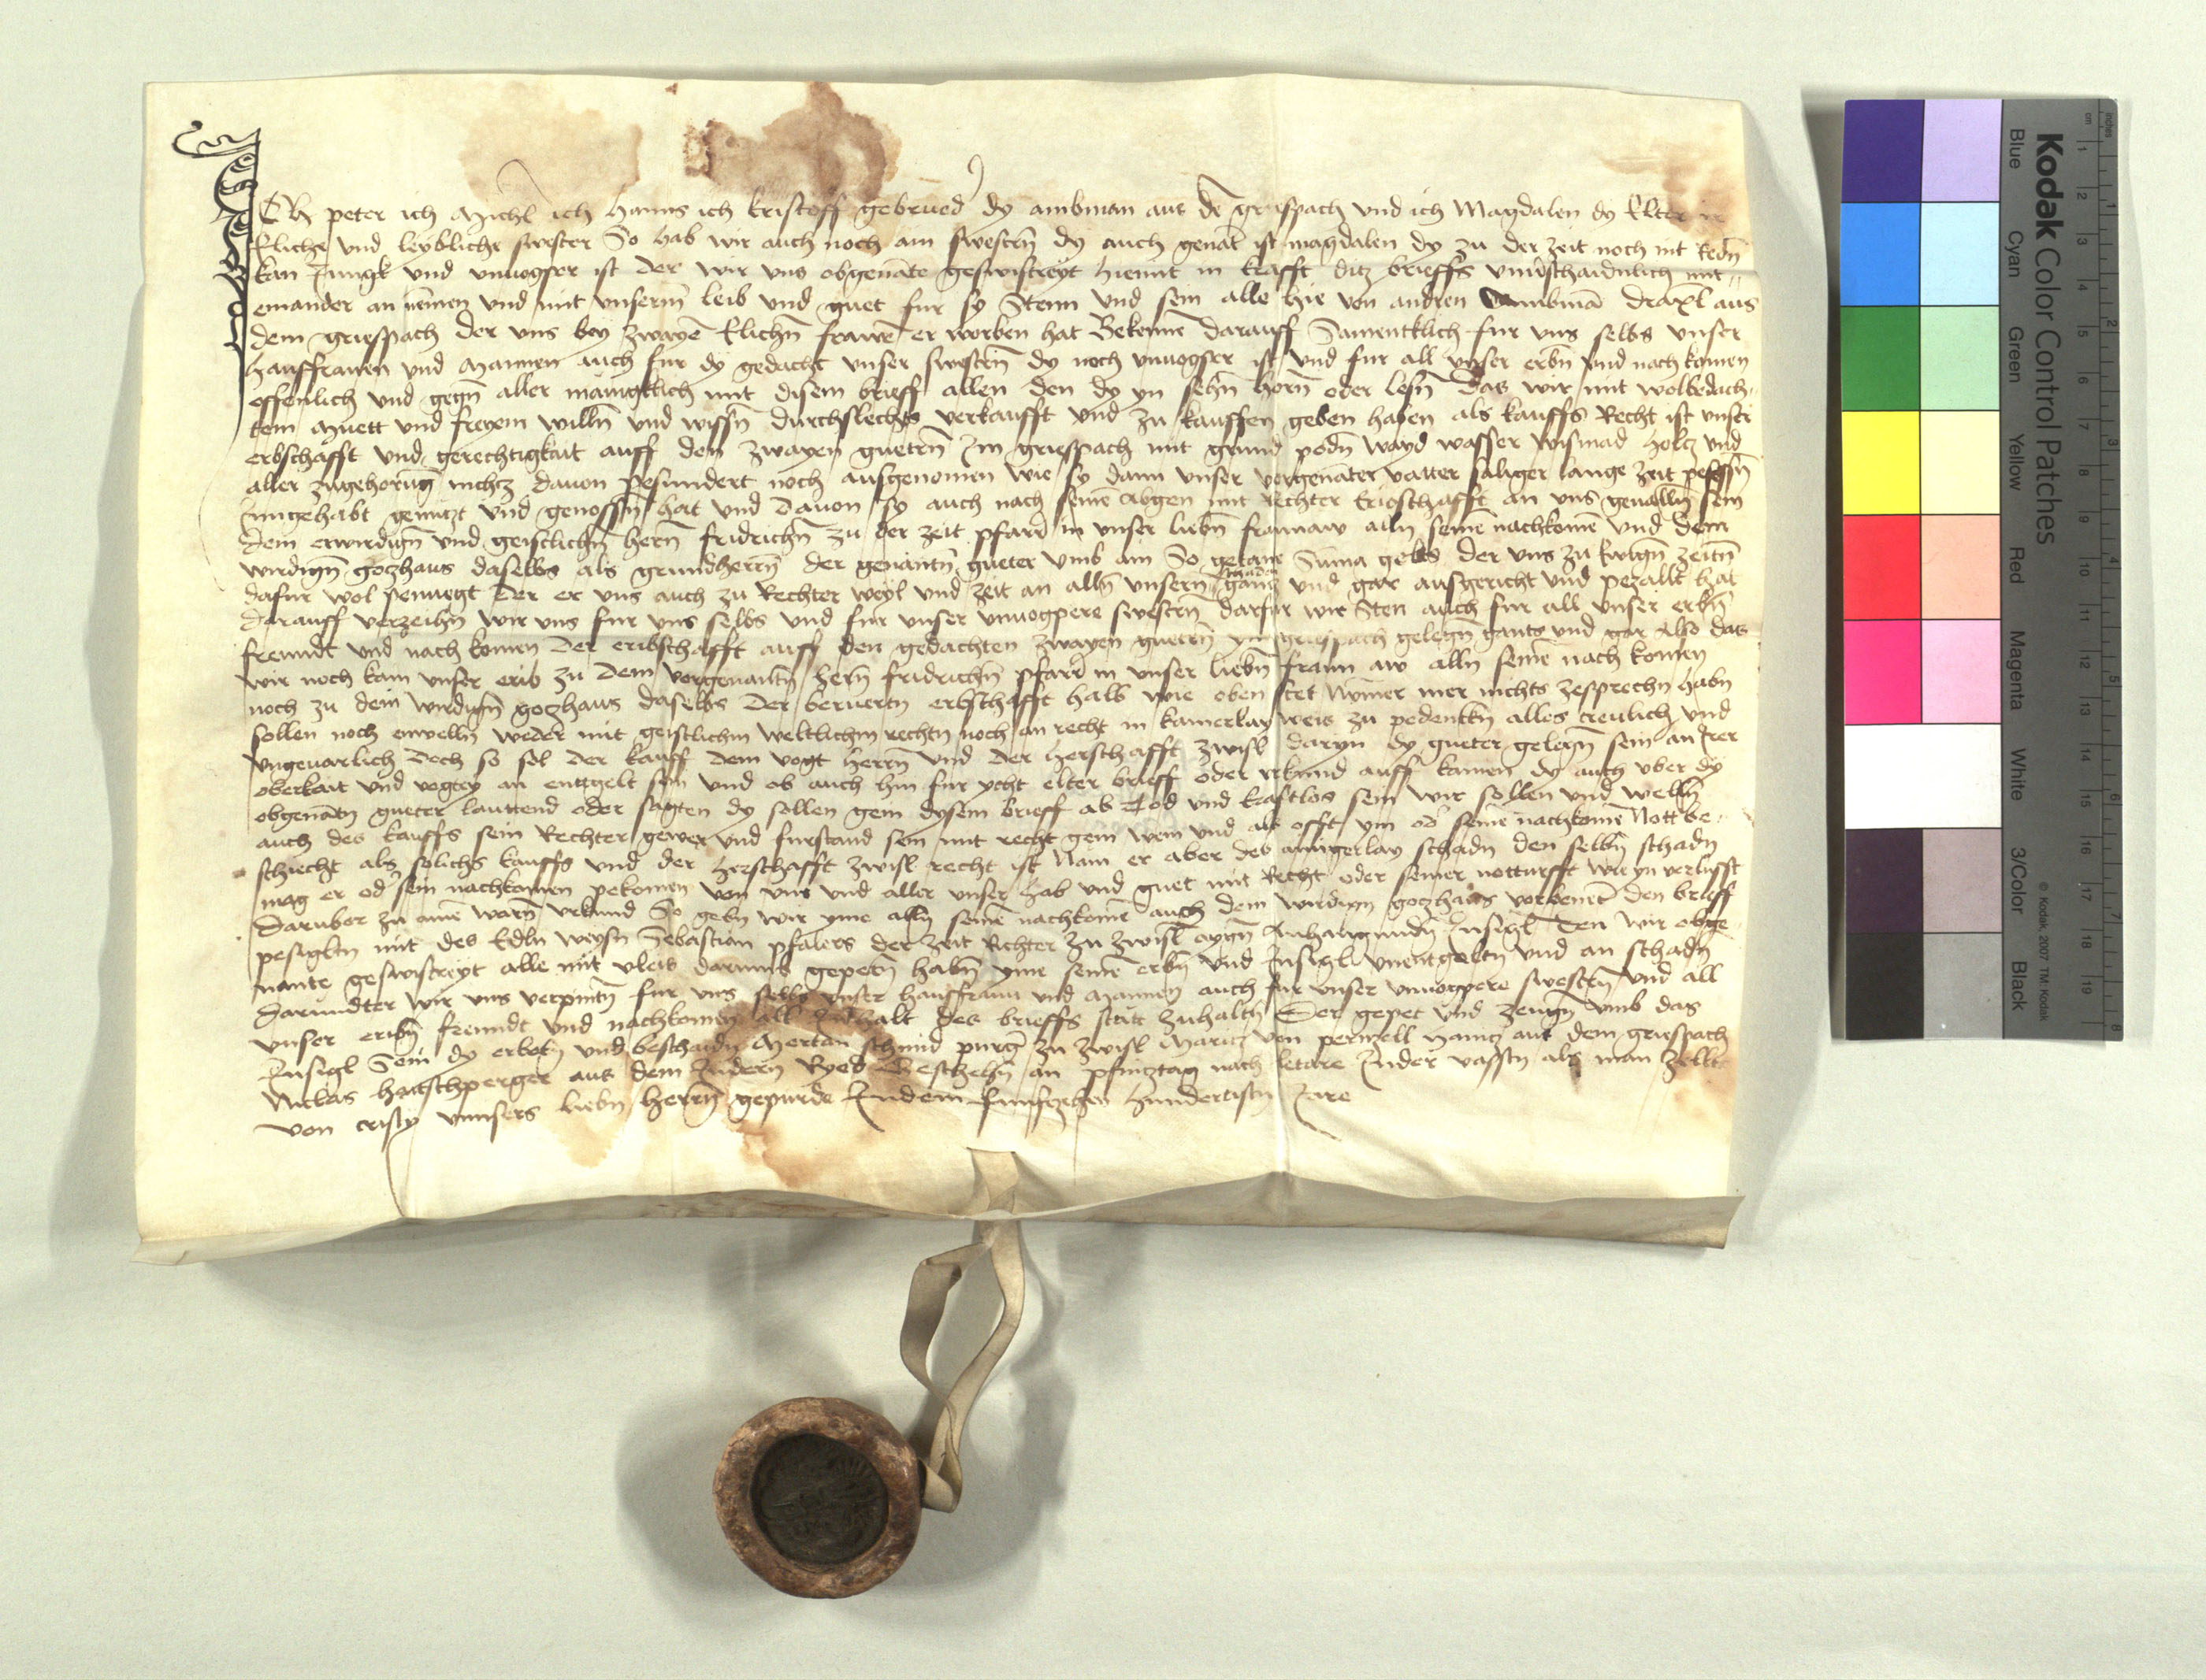 Ich peter ich Michl ich Hanns ich kristoff gebrued dy ambman aus dē griespach vnd ich Magdalen dy Elter ir
Elichs vnd leyblichs swester So hab wir auch noch ain swestern̄ dy auch genāt ist magdalen dy zu der zeit noch nit redn̄
kan Jungk vnd vnuogper ist der wir vns obgenāte geswistreyt hiemit in krafft ditz brieffs vnuerschaidnlich mit
einander an nemen vnd mit vnserm leib vnd guet fur sy Sten vnd sein alle hie von andren ambmā draxl aus
dem griespach der vns bey zwayē Elichn̄ frawē er worben hat Bekenne darauff Samentklich fur vns selbs vnser
hausfrauen vnd Mannen auch fur dy gedacht vnser swestrn̄ dy noch vnuogper ist vnd fur all vnser erbn̄ vnd nach komen
offenlich vnd gegn̄ aller mäingklich mit disem brieff allen den dy yn sehn̄ horn̄ oder lesn̄ das wir mit wolbedach
tem Muett vnd freyem willn̄ vnd wissn̄ durchslechts verkaufft vnd zu kauffen geben haben als kauffs Recht ist vnser
erbschafft vnd gerechtigkait auff den zwayen guetrn̄ Im griespach mit grund podn̄ wayd wasser wismad holtz vnd
aller zugehorūg nichtz dauon pesundert noch ausgenomen wie sy dann vnser vorgenāter vatter saliger lange zeit pesessn̄
Inngehabt genutzt vnd genossn̄ hat vnd dauon sy auch nach seinē abgen mit rechter Eribschafft an vns geualln̄ sein
dem erwirdign̄ vnd geistlichn̄ hern̄ fridrichn̄ zu der zeit pfarr̄ in vnser liebn̄ frawnaw alln seinē nachkomē vnd dem
wirdign̄ gotzhaus daselbs als grundherrn̄ der genantn̄ gueter vmb ain So getane Suma gelts der vns zu ewign̄ zeitn̄
dafur wol penuegt der er vns auch zu Rechter weyl vnd zeit an alln̄ vnsern schaden gantz vnd gar ausgericht vnd pezallt hat
darauff verzeihn̄ wir vns fur vns selbs vnd fur vnser vnuogpere swestrn̄ darfur wir Sten auch fur all vnser erbn̄
freundt vnd nach komen der eribschafft auff den gedachten zwayen guetrn̄ ym griespach gelegn̄ gants vnd gar Also das
wir noch kain vnser erib zu dem vorgenantn̄ hern̄ fridrichn̄ pfarr̄ in vnser liebn̄ fraun aw alln seinē nach komen
noch zu dem wirdign̄ gotzhaus daselbs der beruertn erbschafft halb wie oben stet Nymer mer nichts zesprechn̄ habn̄
sollen noch enwelln̄ weder mit geistlichm weltlichm rechtn̄ noch an recht in kainerlay weis zu pedenkn̄ alles treulich vnd
vngeuarlich doch so sol der kauff dem vogt herrn̄ vnd der herschafft zwisl daryn dy gueter gelegn̄ sein an Irer
oberkait vnd vogtey an enttgelt sein vnd ob auch hin fur ycht elter brieff oder vrkund auff kamen dy auch vber dy
obgenātn̄ gueter lauttend oder sagten dy sollen gein dysem brieff ab Tod vnd krafftlos sein wir sollen vnd welln̄
auch des kauffs sein Rechter gewer vnd furstand sein mit recht gein wem vnd als offt ym od seinē nachkomē Nott be
schiecht als solichs kauffs vnd der herschafft zwisl recht ist Nam er aber des ainigerlay schadn̄ den selbn̄ schadn̄
mag er od sein nachkomen pekomen von vns vnd aller vnser hab vnd guet mit Recht oder seiner notturfft wie yn verlusst
Daruber zu ainē warn̄ vrkund So gebn̄ wir yme alln seinē nachkomē auch dem wirdign gotzhaus vorbenēt den brieff
pesigltn mit des Edln weysn̄ Sebastian pfalers der zeit Richter zu zwisl aygn̄ Anhangundn̄ Insigl Den wir obge
nante geswistreyt alle mit vleis darumb gepetn̄ habn̄ yme seinē erbn̄ vnd Insigl vnentgoltn vnd an schadn̄
Darundter wir vns verpintn̄ fur vns selbs vnser hausfraun vnd Mannen auch fur vnser vnuogpere swestrn̄ vnd all
vnser eribn̄ freundt vnd nachkomen all Innhalt des brieffs stätt zuhaltn̄ Der gepet vnd zeugn̄ vmb das
Insigl Sein dy erbern vnd beschaidn̄ Mertan schmid purḡ zu zwisl Maritz von pernzell Haintz aus dem griespach
Niclas haitschperger aus dem Indern Ryed Beschehn̄ an pfintztag nach letare Inder vasstn als man zellt
von cristy vnnsers liebn̄ herrn̄ gepurde Indem funfftzehen hundertistn Jare
Kodak Color Control Patches
Blue Cyan Green Yellow Red Magenta White 3/Color Black
© Kodak, 2007 TM: Kodak
inches 1 2 3 4 5 6 7 8
cm 1 2 3 4 5 6 7 8 9 10 11 12 13 14 15 16 17 18 19